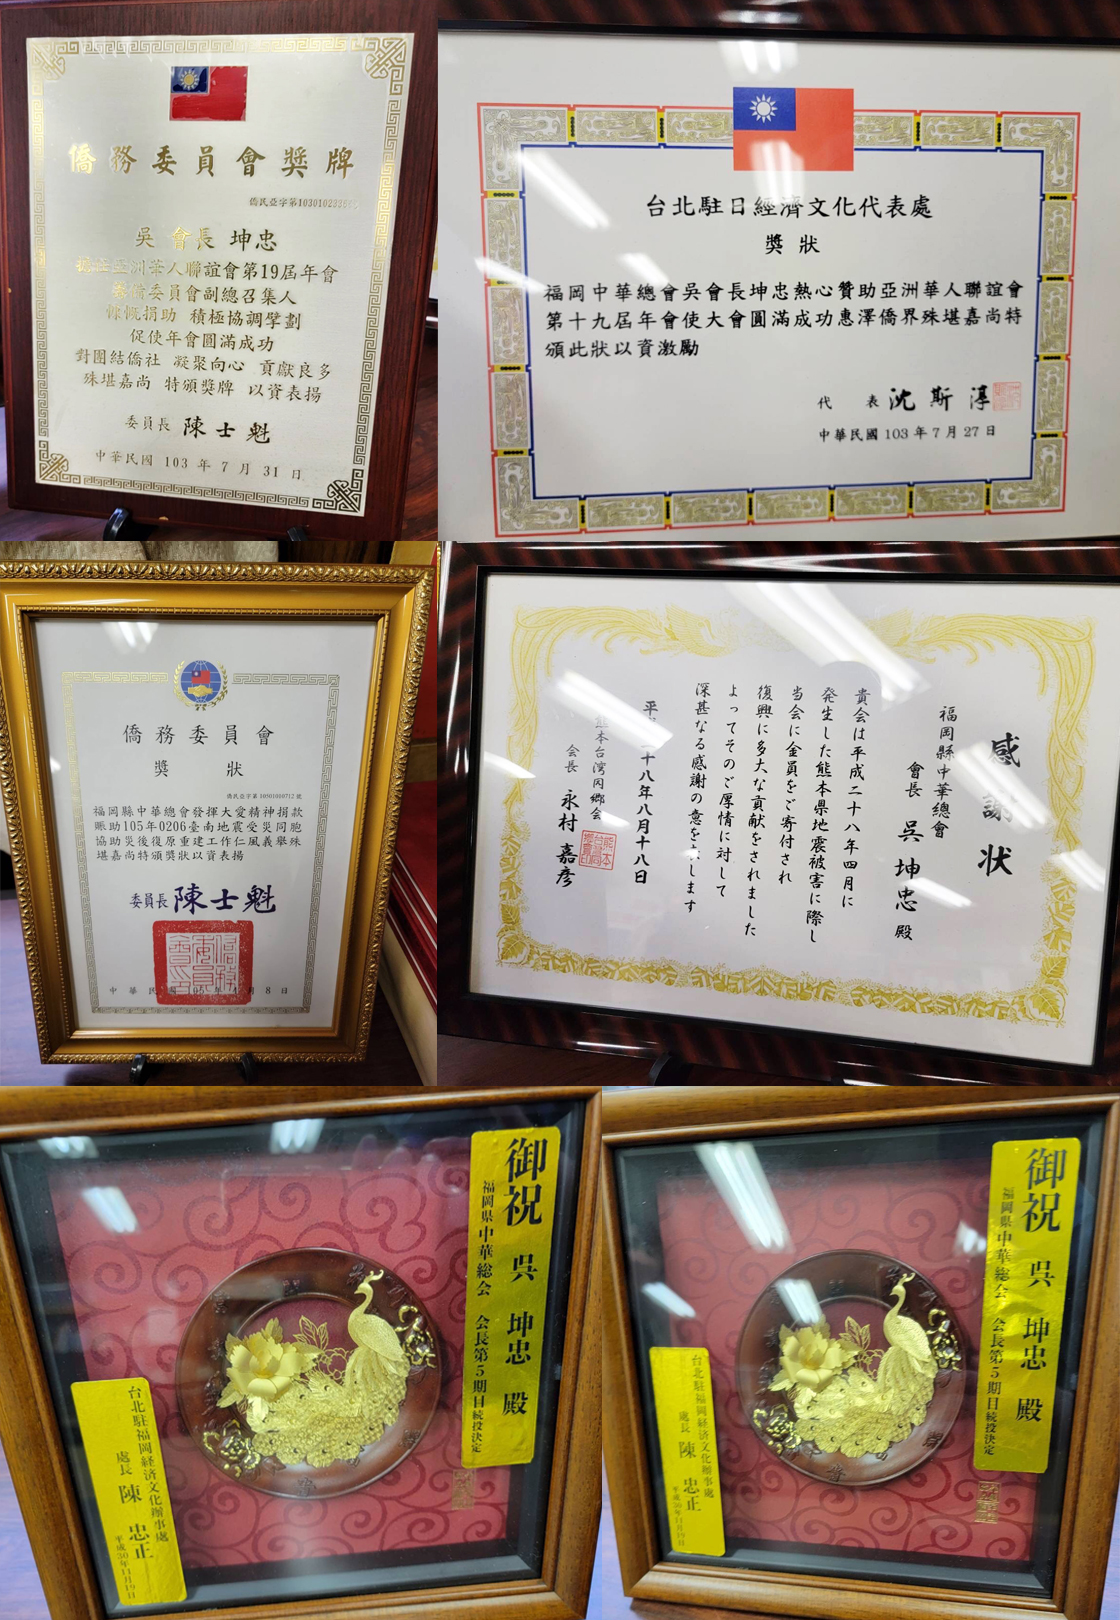 僑務委員會獎牌
吳會長坤忠
擔任亞洲華人聯誼會第19屆年會
籌備委員會副總召集人
慷慨捐助 積極協調擘劃
促使年會圓滿成功
對團結僑社 凝聚向心 貢獻良多
殊堪嘉尚 特頒獎牌 以資表揚
委員長 陳士魁
中華民國 103 年 7 月 31 日
台北駐日經濟文化代表處
獎狀
福岡中華總會吳會長坤忠熱心贊助亞洲華人聯誼會
第十九屆年會使大會圓滿成功惠澤僑界殊堪嘉尚特
頒此狀以資激勵
代 表 沈斯淳
中華民國 103 年 7 月 27 日
僑務委員會
獎 狀
僑民亞字第10501010712號
福岡縣中華總會發揮大愛精神捐款
賑助105年0206臺南地震受災同胞
協助災後復原重建工作仁風義舉殊
堪嘉尚特頒獎狀以資表揚
委員長 陳士魁
感謝状
福岡縣中華總會
會長 吳坤忠 殿
貴会は平成二十八年四月に
発生した熊本県地震被害に際し
当会に金員をご寄付され
復興に多大な貢献をされました
よってそのご厚情に対して
深甚なる感謝の意を します
平 十八年八月十八日
熊本台湾同郷会
会長 永村嘉彦
御祝 呉 坤忠 殿
福岡県中華総会 会長第5期目続投決定
台北駐福岡経済文化辦事處
處長 陳 忠正
平成30年11月19日
御祝 呉 坤忠 殿
福岡県中華総会 会長第5期目続投決定
台北駐福岡経済文化辦事處
處長 陳 忠正
平成30年11月19日